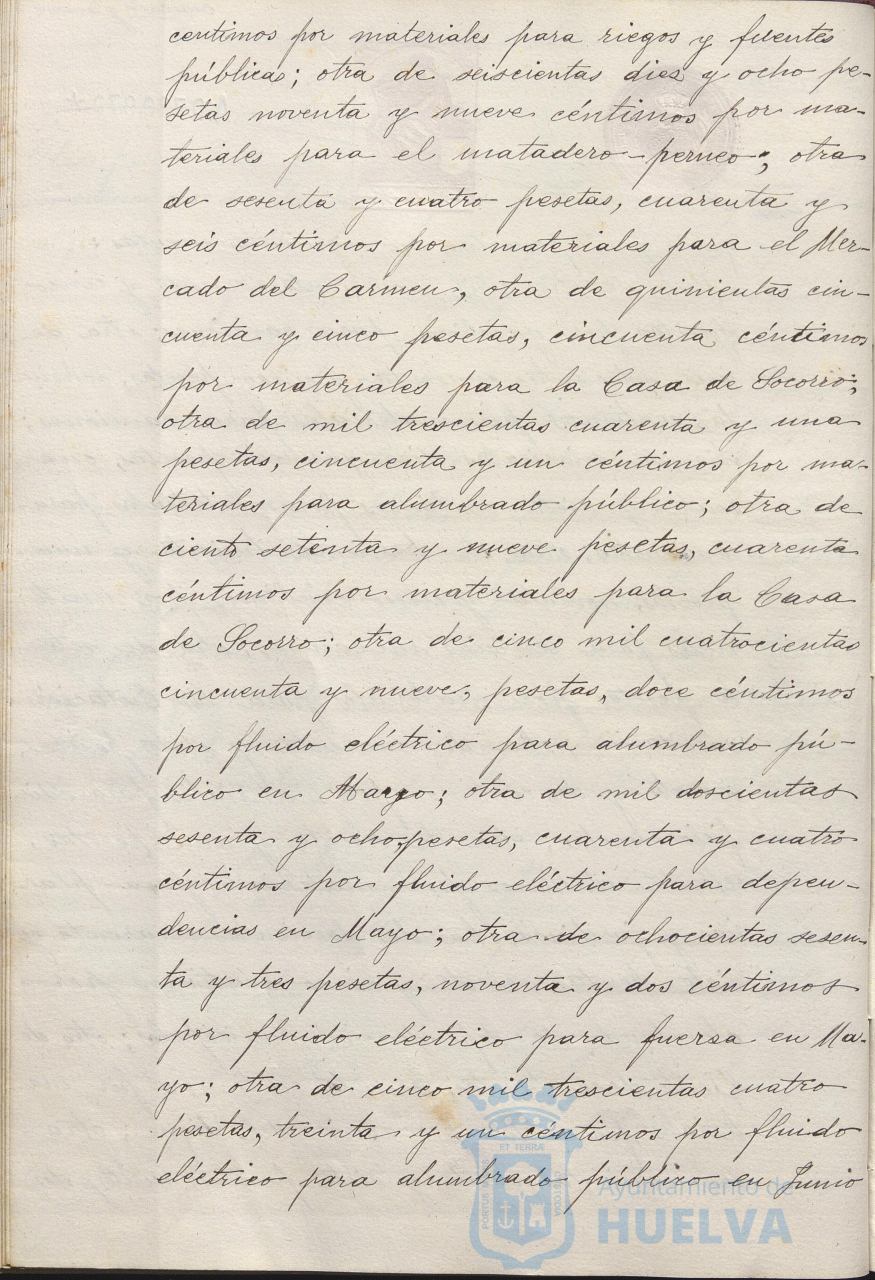 centimos por materiales para riegos y fuentes
públicas; otra de seiscientas diez y ocho pe-
setas noventa y nueve céntimos por ma-
teriales para el matadero perneo; otra
de sesenta y cuatro pesetas, cuarenta y
seis céntimos por materiales para el Mer-
cado del Carmen, otra de quinientas cin-
cuenta y cinco pesetas, cincuenta céntimos
por materiales para la Casa de Socorro;
otra de mil trescientas cuarenta y una
pesetas, cincuenta y un céntimos por ma-
teriales para alumbrado público; otra de
ciento setenta y nueve pesetas, cuarenta
céntimos por materiales para la Casa
de Socorro; otra de cinco mil cuatrocientas
cincuenta y nueve, pesetas, doce céntimos
por fluido eléctrico para alumbrado pú-
blico en Mayo; otra de mil doscientas
sesenta y ocho pesetas, cuarenta y cuatro
céntimos por fluido eléctrico para depen-
dencias en Mayo; otra de ochocientas sesen-
ta y tres pesetas, noventa y dos céntimos
por fluido eléctrico para fuersa en Ma-
yo; otra de cinco mil trescientas cuatro
pesetas, treinta y un céntimos por fluido
eléctrico para alumbrado público en Junio
ET TERRAE
PORTUS
CUSTODIA
Ayuntamiento de
HUELVA